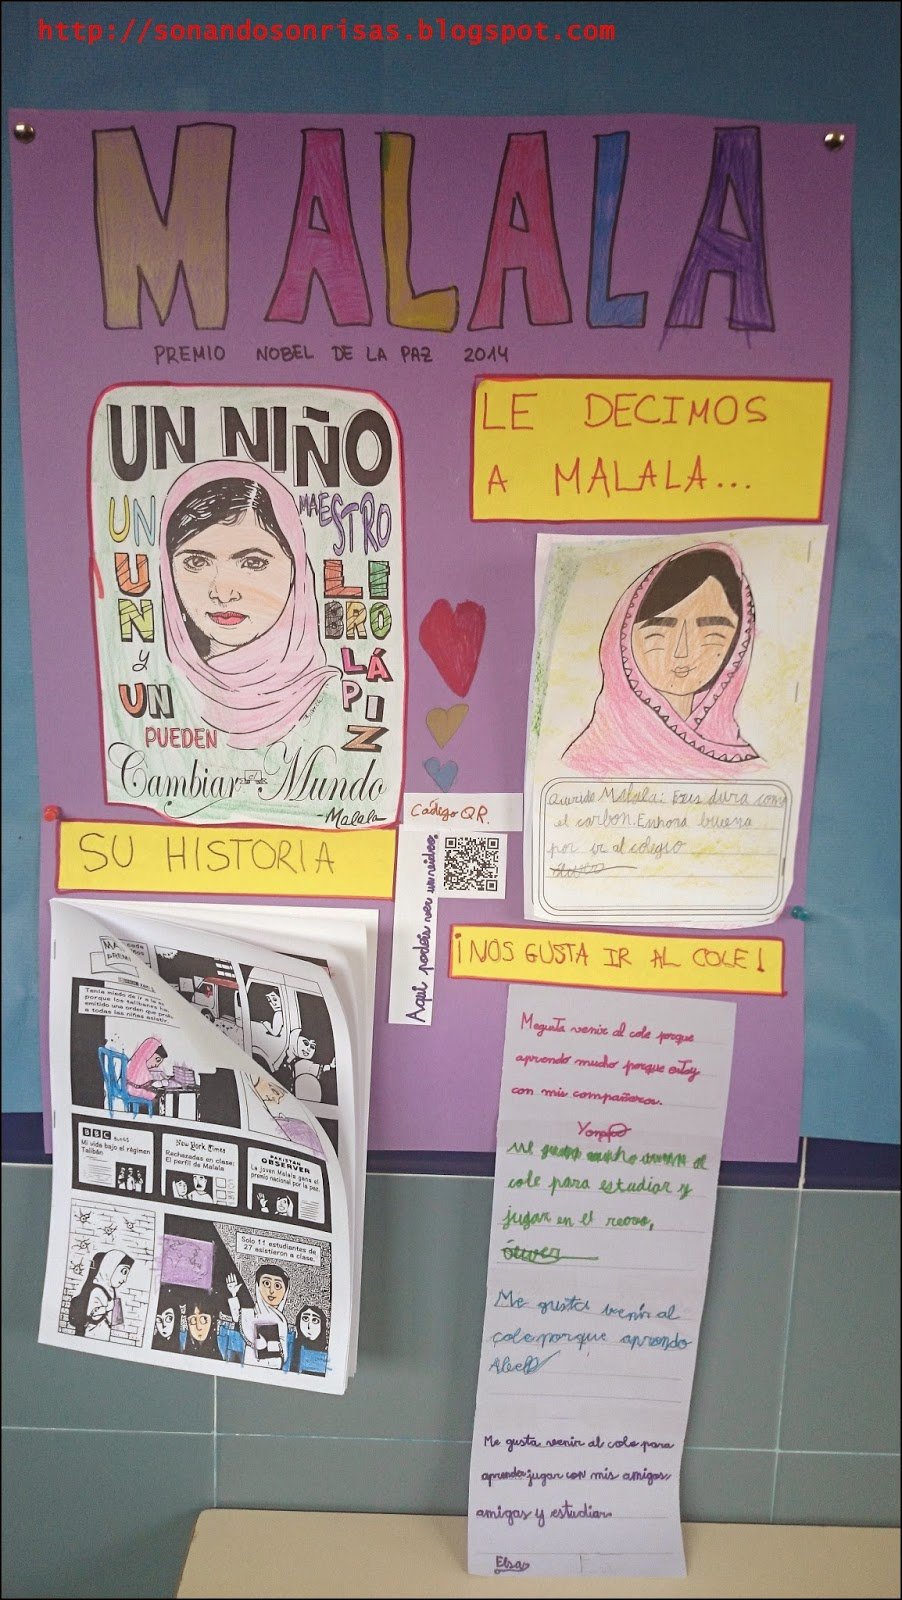 http://sonandosonrisas.blogspot.com
MALALA
PREMIO NOBEL DE LA PAZ 2014
UN NIÑO
UN MAESTRO
UN LIBRO
y UN LÁPIZ
PUEDEN
Cambiar el Mundo
-Malala
LE DECIMOS
A MALALA...
Querida Malala: Eres dura como
el carbon. Enhora buena
por ir al colegio
SU HISTORIA
Código QR.
Aquí podéis ver un vídeo.
¡NOS GUSTA IR AL COLE!
Tenía miedo de ir a la es
porque los talibanes ha
emitido una orden que proh
a todas las niñas asistir.
BBC BLOGS
Mi vida bajo el régimen
Talibán
New York Times
Rechazadas en clase:
El perfil de Malala
PAKISTAN
OBSERVER
La joven Malala gana el
premio nacional por la paz.
Solo 11 estudiantes de
27 asistieron a clase.
Me gusta venir al cole porque
aprendo mucho porque estoy
con mis compañeros.
Me al
cole para estudiar y
jugar en el recreo,
Me gusta venir al
cole porque aprendo
Me gusta venir al cole para
aprender jugar con mis amigos
amigas y estudiar
Elsa